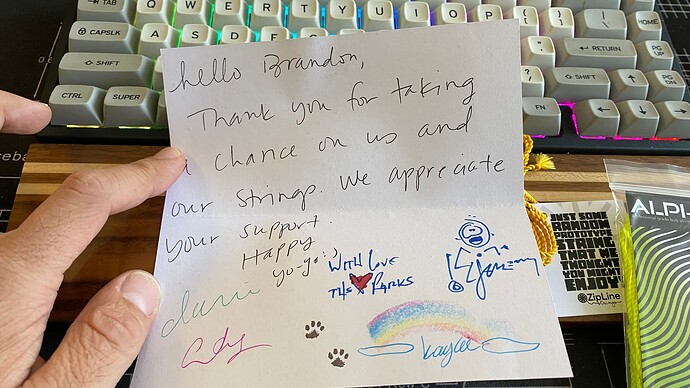 TAB Q W E R T Y U I O P HOME
CAPSLK A S D E RETURN PG UP
SHIFT SHIFT PG DN
CTRL SUPER FN
hello Brandon,
Thank you for taking
a chance on us and
our strings. We appreciate
your support.
Happy
yo-yo :)
WITH LOVE
THE PARKS
Jeremy
Kaylee
JUST SOME
RANDOM
PROTOTYPE
STRING
THAT WE
THOUGHT
YOU MIGHT
ENJOY
ZipLine
Strings
ALPI